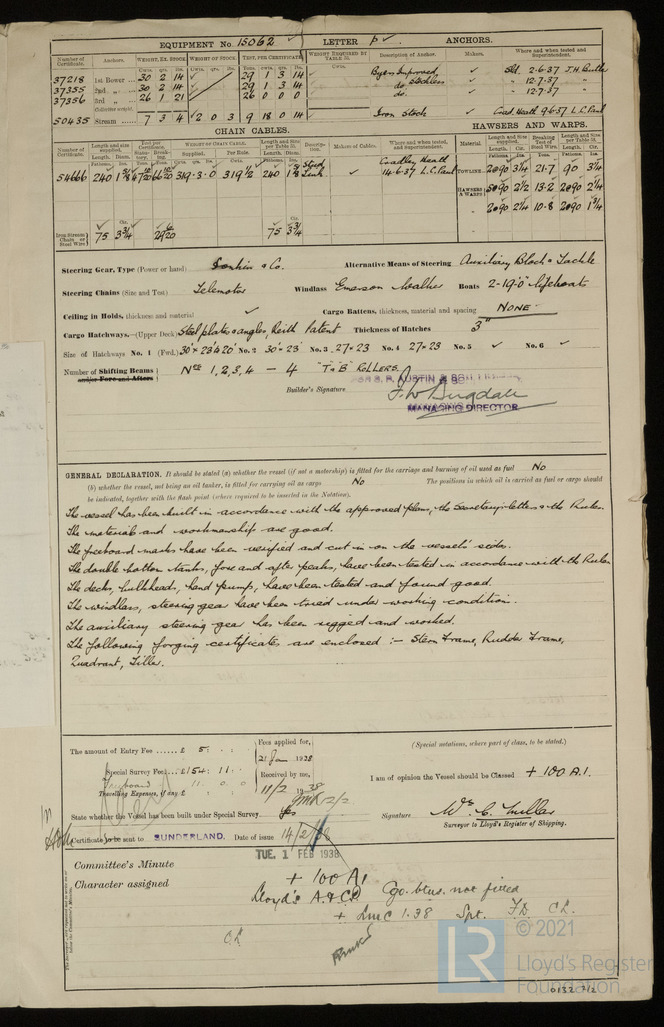 EQUIPMENT No. 15062 LETTER p ANCHORS.
Number of Certificate. Anchors. WEIGHT, EX. STOCK WEIGHT OF STOCK. TEST, PER CERTIFICATE WEIGHT REQUIRED BY TABLE 53. Description of Anchor. Makers. Where and when tested and Superintendent.
37218 1st Bower 30 2 14 29 1 3 14 Byers Improved Stockless Sld. 2-6-37 J.H. Butler
37355 2nd 30 2 14 29 1 3 14 do 12-7-37
37356 3rd 26 1 21 26 0 0 0 do. 12-7-37
Collective weight
50435 Stream 7 3 4 2 0 3 9 18 0 14 Iron Stock Crad. Heath 9-6-37 L.C. Paul
CHAIN CABLES. HAWSERS AND WARPS.
Number of Certificate. Length and size supplied. Test per Certificate. WEIGHT OF CHAIN CABLE. Length and size per Table 53. Description. Makers of Cables. Where and when tested, and Superintendent. Material Length and Size Supplied. Breaking Test of Steel Wire. Length and Size per Table 53.
Length. Diam. Statutory. Breaking. Supplied. Per Rule. Length. Diam. Length. Cir. Length. Cir.
54666 240 1 5/8 319·3·0 319 1/2 240 1 5/8 Stud Link Cradley Heath 14-6-37 L.C. Paul TOWLINES 90 3 1/4 21·7 90 3 1/4
HAWSERS & WARPS 90 2 1/2 13·2 90 2 1/4
90 2 1/4 10·8 90 1 3/4
Iron Stream Chain or Steel Wire 75 3 3/4 75 3 3/4
Steering Gear, Type (Power or hand) Donkin & Co. Alternative Means of Steering Auxiliary Block & Tackle
Steering Chains (Size and Test) Telemotor Windlass Emerson Walker Boats 2-19'0" Lifeboats
Ceiling in Holds, thickness and material Cargo Battens, thickness, material and spacing NONE
Cargo Hatchways.—(Upper Deck) Steel plates & angles, Reith Patent Thickness of Hatches 3"
Size of Hatchways No. 1 (Fwd.) 30' × 23' & 20' No. 2 30' × 23' No. 3 27 × 23 No. 4 27 × 23 No. 5 No. 6
Number of Shifting Beams and/or Fore and Afters Nos 1, 2, 3, 4 — 4 "T & B" ROLLERS.
FOR S. P. AUSTIN & SON LIMITED
Builder's Signature
MANAGING DIRECTOR
GENERAL DECLARATION. It should be stated (a) whether the vessel (if not a motorship) is fitted for the carriage and burning of oil used as fuel No
(b) whether the vessel, not being an oil tanker, is fitted for carrying oil as cargo No The positions in which oil is carried as fuel or cargo should
be indicated, together with the flash point (where required to be inserted in the Notation).
The vessel has been built in accordance with the approved plans, the Secretary's letters & the Rules.
The materials and workmanship are good.
The freeboard marks have been verified and cut in on the vessel's sides.
The double bottom tanks, fore and after peaks, have been tested in accordance with the Rules
The decks, bulkheads, hand pumps, have been tested and found good.
The windlass, steering gear have been tried under working condition.
The auxiliary steering gear has been rigged and worked.
The following forging certificates are enclosed :- Stern Frame, Rudder Frame,
Quadrant, Tiller.
The amount of Entry Fee £ 5 : : Fees applied for, 21 Jan 1938 (Special notations, where part of class, to be stated.)
Special Survey Fee £154 : 11 : Received by me,
Freeboard 11 : 0 : 0 11/2 1938 I am of opinion the Vessel should be Classed + 100 A.1.
Travelling Expenses, if any £ : :
State whether the Vessel has been built under Special Survey Yes Signature Wm. C. Millar
Surveyor to Lloyd's Register of Shipping.
Certificate to be sent to SUNDERLAND. Date of issue 14/2/38
TUE. 1 FEB 1938
Committee's Minute
Character assigned + 100 A1
Lloyd's A & CP Go. btus. not fitted
+ LMC 1.38 Spt. FD CL.
CL
© 2021
LR Lloyd's Register
Foundation
0132 2/2